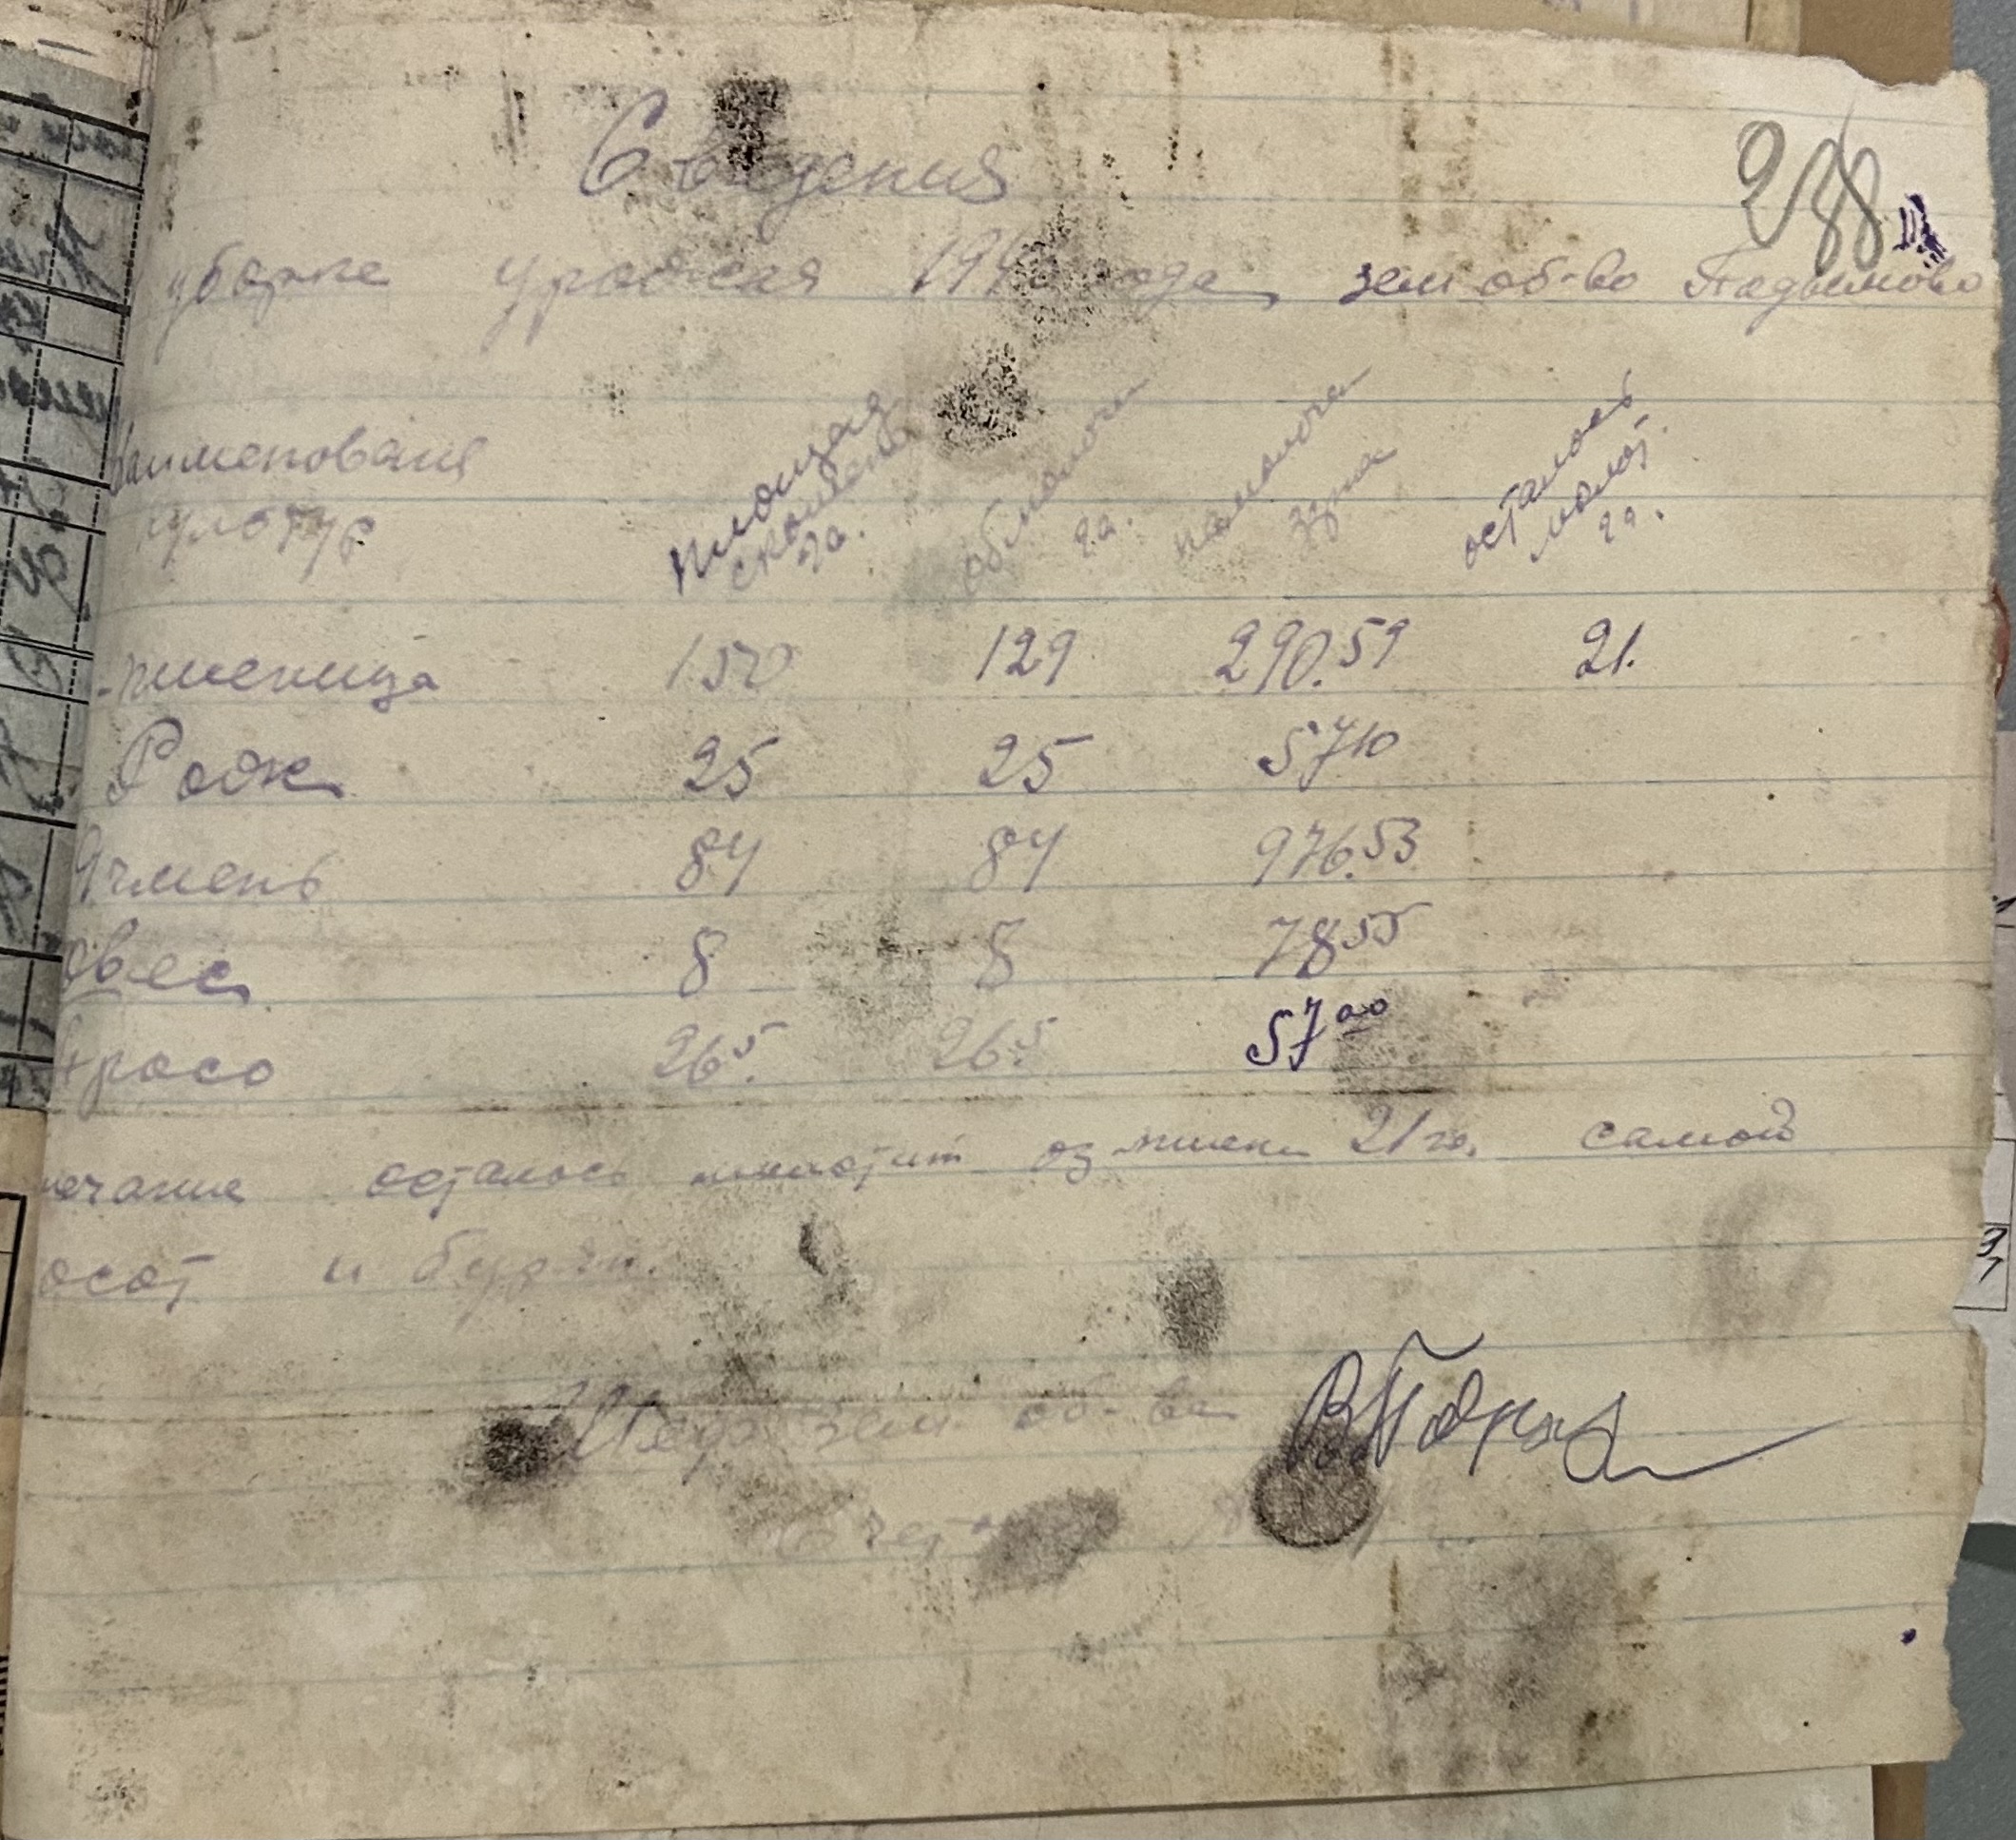 Сведения
288
уборке урожая 194 года зем об-во
наименование
культур
площадь
скошено
га.
обмолоч
га.
намолоч
зерна
осталось
молот.
га.
пшеница 150 129 290.59 21.
Рож 25 25 57 10
Ячмень 84 84 976.53
Овес 8 8 78 55
просо 26.5 26.5 57 00
мечание осталось оз пшен 21 га. самой
осот и
зем об-ва
Счет